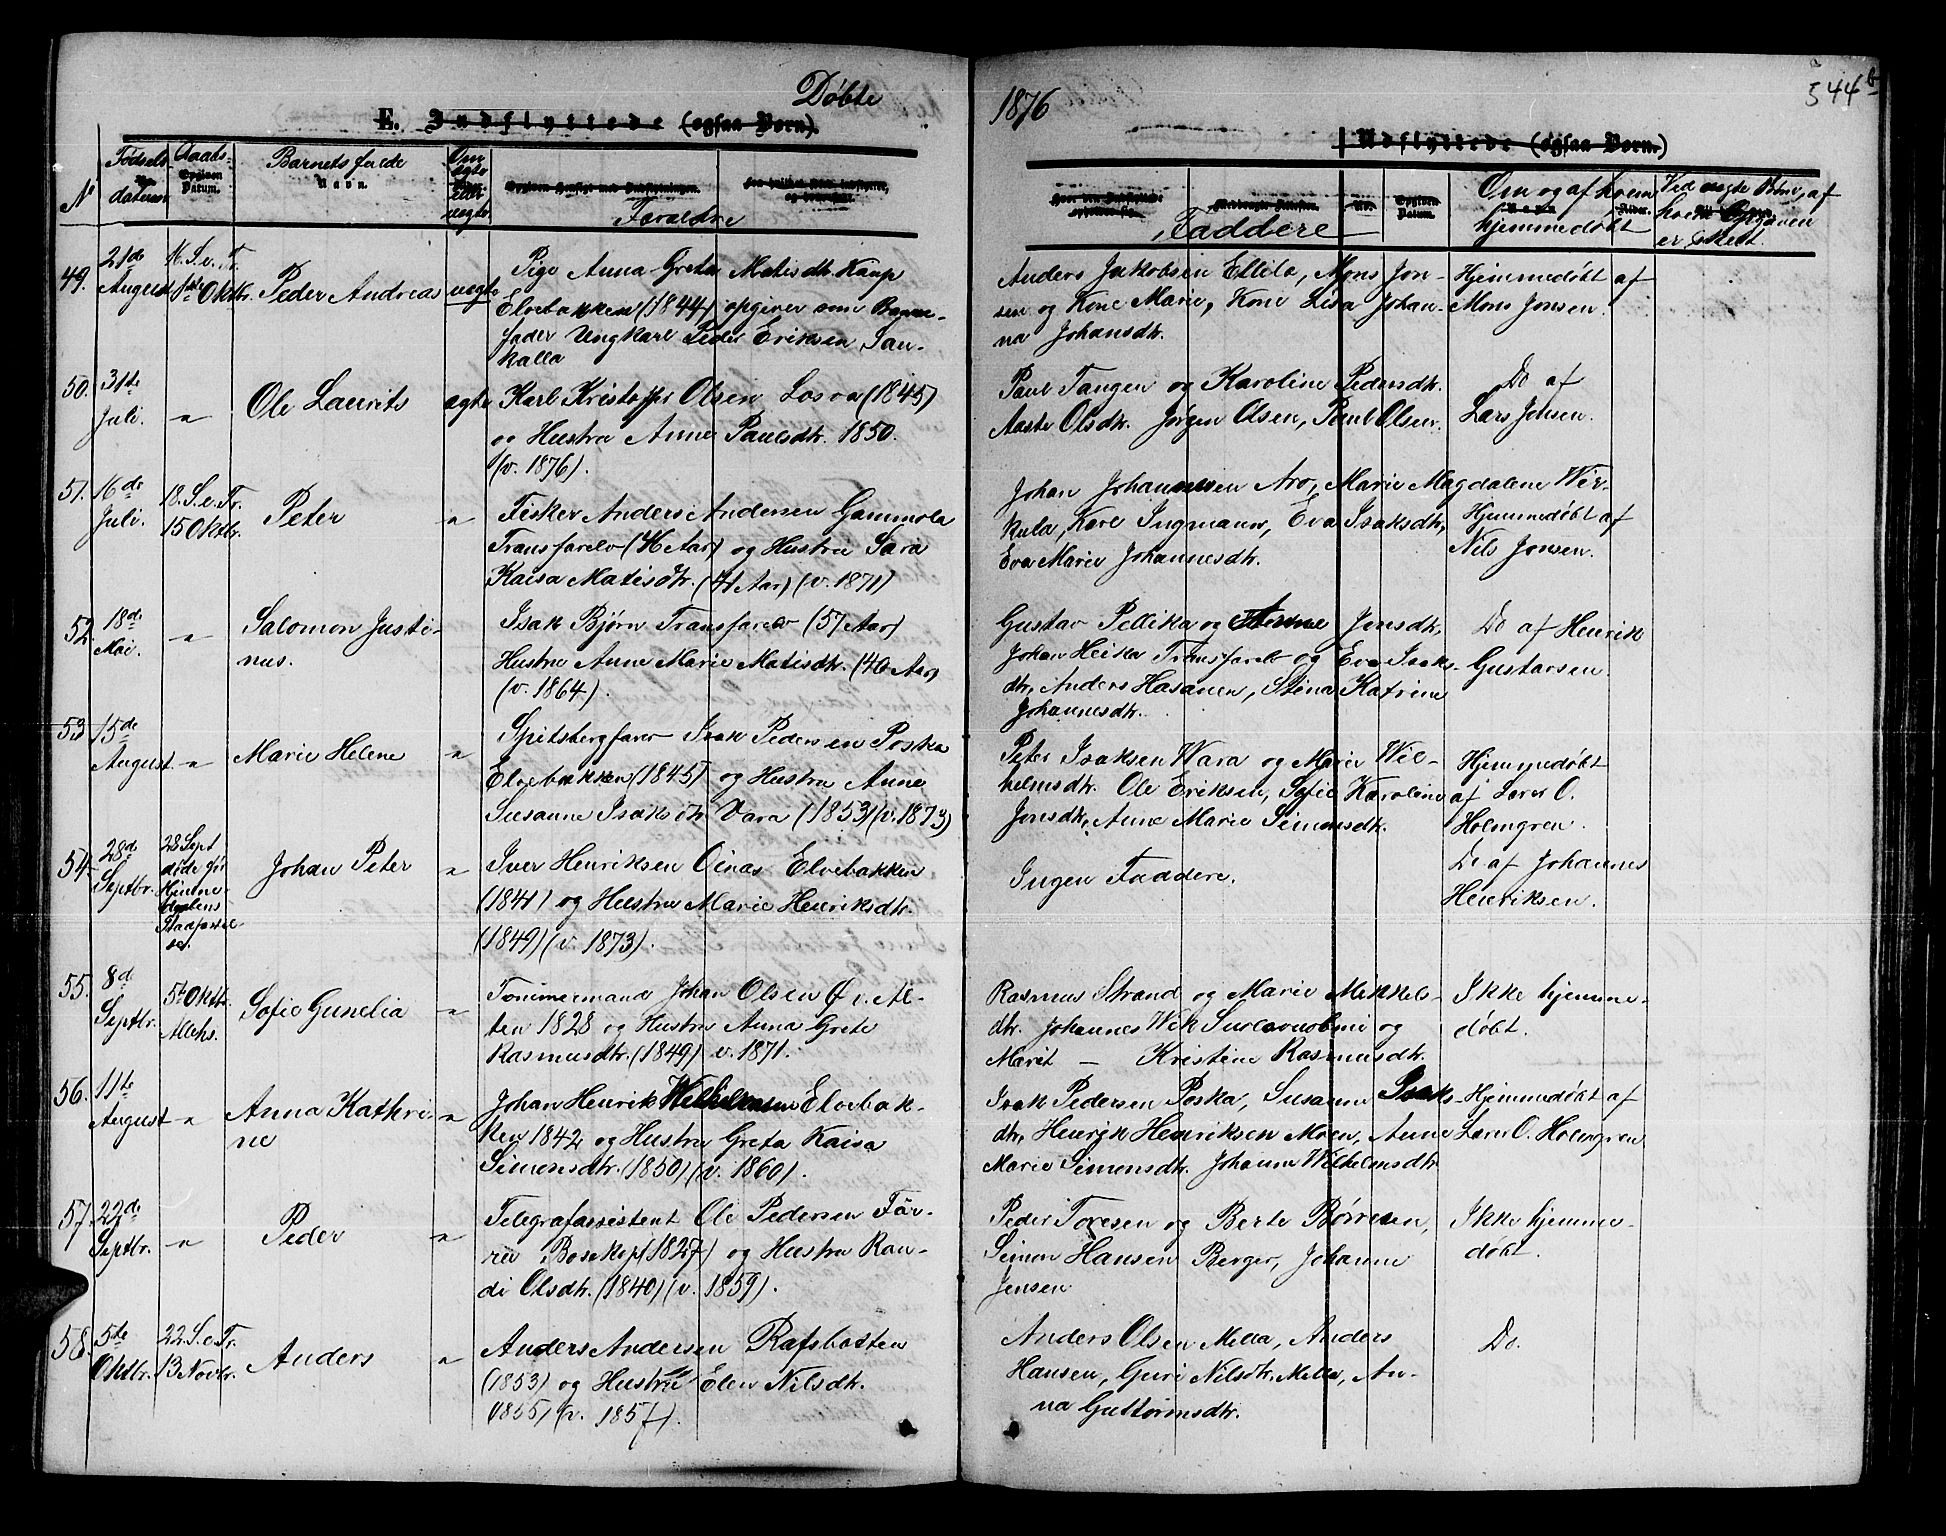 Døbte
E. Indflyttede (ogsaa Børn).
1876
544 b
Udflyttede (ogsaa Børn.)
N
Fødsels
datum
Daabs-
Opgiven
Datum.
Barnets fulde
Navn.
Om
ægte
eller
uægte
Forældre
Faddere
Om og af hvem
hjemmedøbt
Ved uægte Børn, af
hvem Opgaven
er skeet.
49. 21de August 16. S. e. Tr. 1ste Oktbr. Peder Andreas uægte Pige Anna Greta Matisdtr. Kaup
Elvebakken (1844) opgiver som Barne-
fader Ungkarl Peder Eriksen Lau-
kalla
Anders Jakobsen Ellila, Mons Jon-
sen og Kone Marie, Kone Lisa Johan-
na Johansdtr.
Hjemmedøbt af
Mons Jonsen.
50. 31te Juli. " Ole Laurits ægte Karl Kristoffer Olsen Losva (1845)
og Hustru Anne Paulsdtr. 1850.
(v. 1876).
Paul Tangen og Karoline Pedersdtr.
Aaste Olsdtr. Jørgen Olsen, Paul Olsen.
Do af
Lars Jensen.
51. 16de Juli. 18. S. e. Tr. 15 Oktbr. Peter " Fisker Anders Andersen Gammela
Transfarelv (46 Aar) og Hustru Sara
Kaisa Matisdtr. (41 Aar) (v. 1871)
Johan Johannesen Aro, Marie Magdalene Wir-
kula, Karl Ingmann, Eva Isaksdtr,
Eva Marie Johannesdtr.
Hjemmedøbt af
Nils Jonsen.
52. 18de Mai. " Salomon Justi-
nus.
Isak Bjørn Transfarelv (57 Aar)
Hustru Anne Marie Matisdtr. (40 Aar)
(v. 1864).
Gustav Pellika og Anne Jensdtr,
Johan Heika Transfarelv og Eva Isaks-
dtr, Anders Hasanen, Stina Katrine
Johannesdtr.
Do af Henrik
Gustavsen.
53 15de August. " Marie Helene " Spitsbergfarer Isak Pedersen Poska
Elvebakken (1845) og Hustru Anne
Susanne Isaksdtr. Vara (1853) (v. 1873)
Peter Isaksen Wara og Marie Wil-
helmsdtr. Ole Eriksen, Sofie Karoline
Jonsdtr, Anne Marie Simonsdtr.
Hjemmedøbt
af Lærer O.
Holmgren.
54. 28de Septbr. 28 Sept
døde før
Hjemme-
daabens
Stadfæstel-
se.
Johan Peter " Iver Henriksen Oinas Elvebakken
(1841) og Hustru Marie Henriksdtr.
(1849) (v. 1873).
Ingen Faddere.
Do af Johannes
Henriksen.
55. 8de Septbr. 5te Oktbr. Sofie Gunelia " Tømmermand Johan Olsen Øv. Al-
ten 1828 og Hustru Anna Grete
Rasmusdtr. (1849) v. 1871.
Rasmus Strand og Marie Mikkels-
dtr. Johannes Wik og
Marit — Kristine Rasmusdtr.
Ikke hjemme-
døbt.
56. 11te August " Anna Kathri-
ne
" Johan Henrik Wilhelmsen Elvebak-
ken 1842 og Hustru Greta Kaisa
Simonsdtr. (1850) (v. 1860).
Isak Pedersen Poska, Susanne Isaks-
dtr, Henrik Henriksen Moen, Anne
Marie Simonsdtr. Johanne Wilhelmsdtr.
Hjemmedøbt af
Lærer O. Holmgren
57. 22de Septbr. " Peder " Telegrafassistent Ole Pedersen Får-
ren Bosekop (1827) og Hustru Ran-
di Olsdtr. (1840) (v. 1859).
Peder Toresen og Berte Børresen,
Simon Hansen Berger, Johanne
Jensen
Ikke hjemme-
døbt.
58. 5te Oktbr. 22. S. e. Tr. 13 Novbr. Anders " Anders Andersen Rafsbotten
(1853) og Hustru Elen Nilsdtr.
(1855) (v. 1857).
Anders Olsen Mella, Anders
Hansen, Guri Nilsdtr. Mella, An-
na Guttormsdtr.
Do.